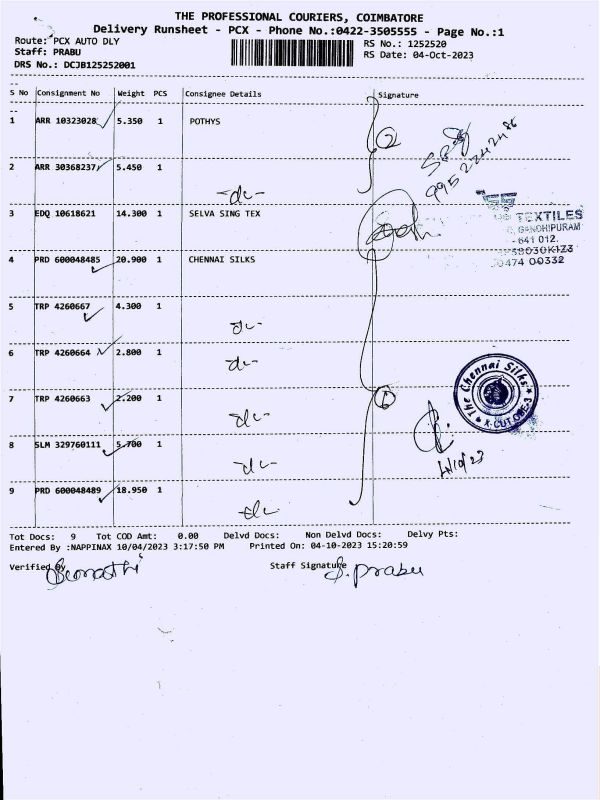 THE PROFESSIONAL COURIERS, COIMBATORE
Delivery Runsheet - PCX - Phone No.:0422-3505555 - Page No.:1
Route: PCX AUTO DLY RS No.: 1252520
Staff: PRABU RS Date: 04-Oct-2023
DRS No.: DCJB125252001
S No Consignment No Weight PCS Consignee Details Signature
1 ARR 10323028 5.350 1 POTHYS
2
2 ARR 30368237 5.450 1
-do-
3 EDQ 10618621 14.300 1 SELVA SING TEX
TEXTILES
GANDHIPURAM
641 012.
0474 00332
4 PRD 600048485 20.900 1 CHENNAI SILKS
5 TRP 4260667 4.300 1
-do-
6 TRP 4260664 2.800 1
-do-
7 TRP 4260663 2.200 1
-do-
The Chennai Silks
8 SLM 329760111 5.700 1
-do-
4/10/23
9 PRD 600048489 18.950 1
-do-
Tot Docs: 9 Tot COD Amt: 0.00 Delvd Docs: Non Delvd Docs: Delvy Pts:
Entered By :NAPPINAX 10/04/2023 3:17:50 PM Printed On: 04-10-2023 15:20:59
Verified By Staff Signature S. Prabu